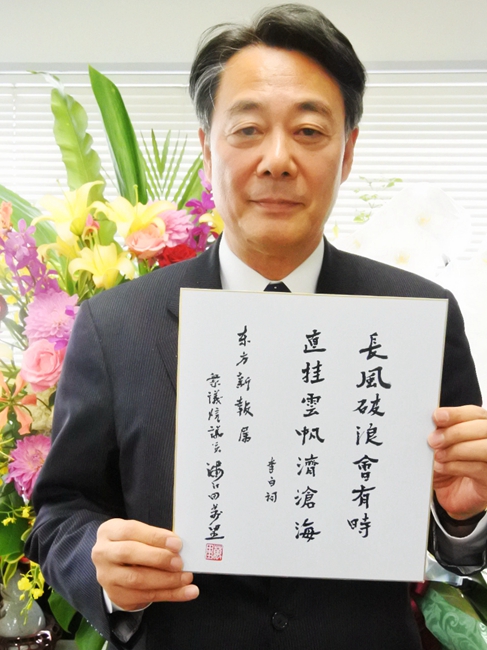 長風破浪會有時
直挂雲帆濟滄海
李白詞
东方新報属
衆議院議員 海江田萬里